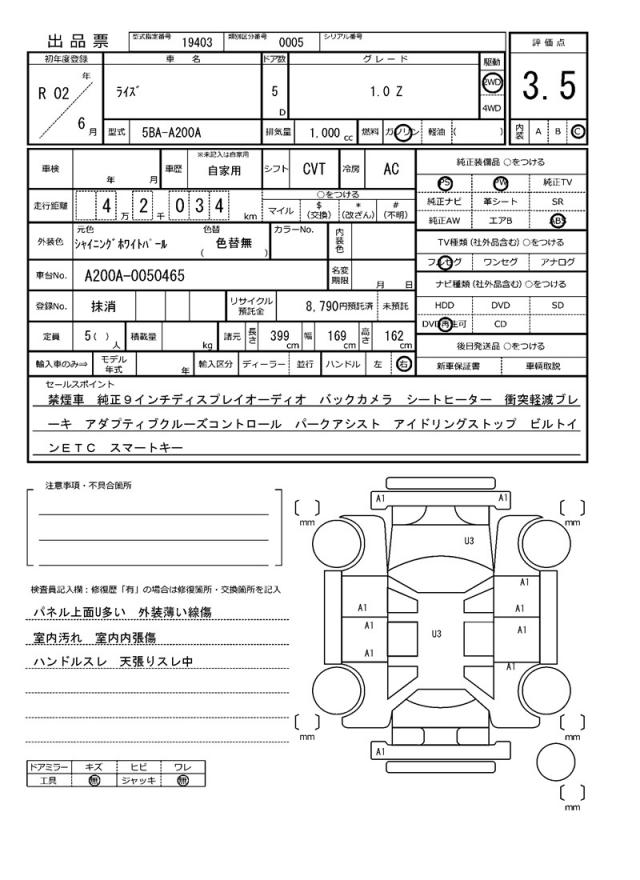 出品票 型式指定番号 19403 類別区分番号 0005 シリアル番号
評価点
3.5
内装 A B C
初年度登録 車名 ドア数 グレード 駆動
R 02 年 6 月
ライズ 5 D 1.0 Z 2WD 4WD
型式 5BA-A200A 排気量 1.000 cc 燃料 ガソリン 軽油 ( )
車検 年 月 車歴 ※未記入は自家用 自家用 シフト CVT 冷房 AC
走行距離 4 万 2 千 0 3 4 km
○をつける
マイル $ (交換) * (改ざん) # (不明)
外装色 元色 シャイニングホワイトパール 色替 ( 色替無 ) カラーNo. 内装色
車台No. A200A-0050465 名変期限 月 日
登録No. 抹消 リサイクル預託金 8,790円預託済 未預託
定員 5( ) 人 積載量 kg 諸元 長さ 399 cm 幅 169 cm 高さ 162 cm
輸入車のみ⇒ モデル年式 年 輸入区分 ディーラー 並行 ハンドル 左 右
純正装備品 ○をつける
PS PW 純正TV
純正ナビ 革シート SR
純正AW エアB ABS
TV種類 (社外品含む) ○をつける
フルセグ ワンセグ アナログ
ナビ種類 (社外品含む) ○をつける
HDD DVD SD
DVD再生可 CD
後日発送品 ○をつける
新車保証書 車輌取説
セールスポイント
禁煙車 純正9インチディスプレイオーディオ バックカメラ シートヒーター 衝突軽減ブレ
ーキ アダプティブクルーズコントロール パークアシスト アイドリングストップ ビルトイ
ンETC スマートキー
注意事項・不具合箇所
検査員記入欄:修復歴「有」の場合は修復箇所・交換箇所を記入
パネル上面U多い 外装薄い線傷
室内汚れ 室内内張傷
ハンドルスレ 天張りスレ中
ドアミラー キズ ヒビ ワレ
工具 無 ジャッキ 無
A1 A1
mm mm
U3
A1
A1 A1
A1
U3 A1
A1
A1
mm mm
A1
mm